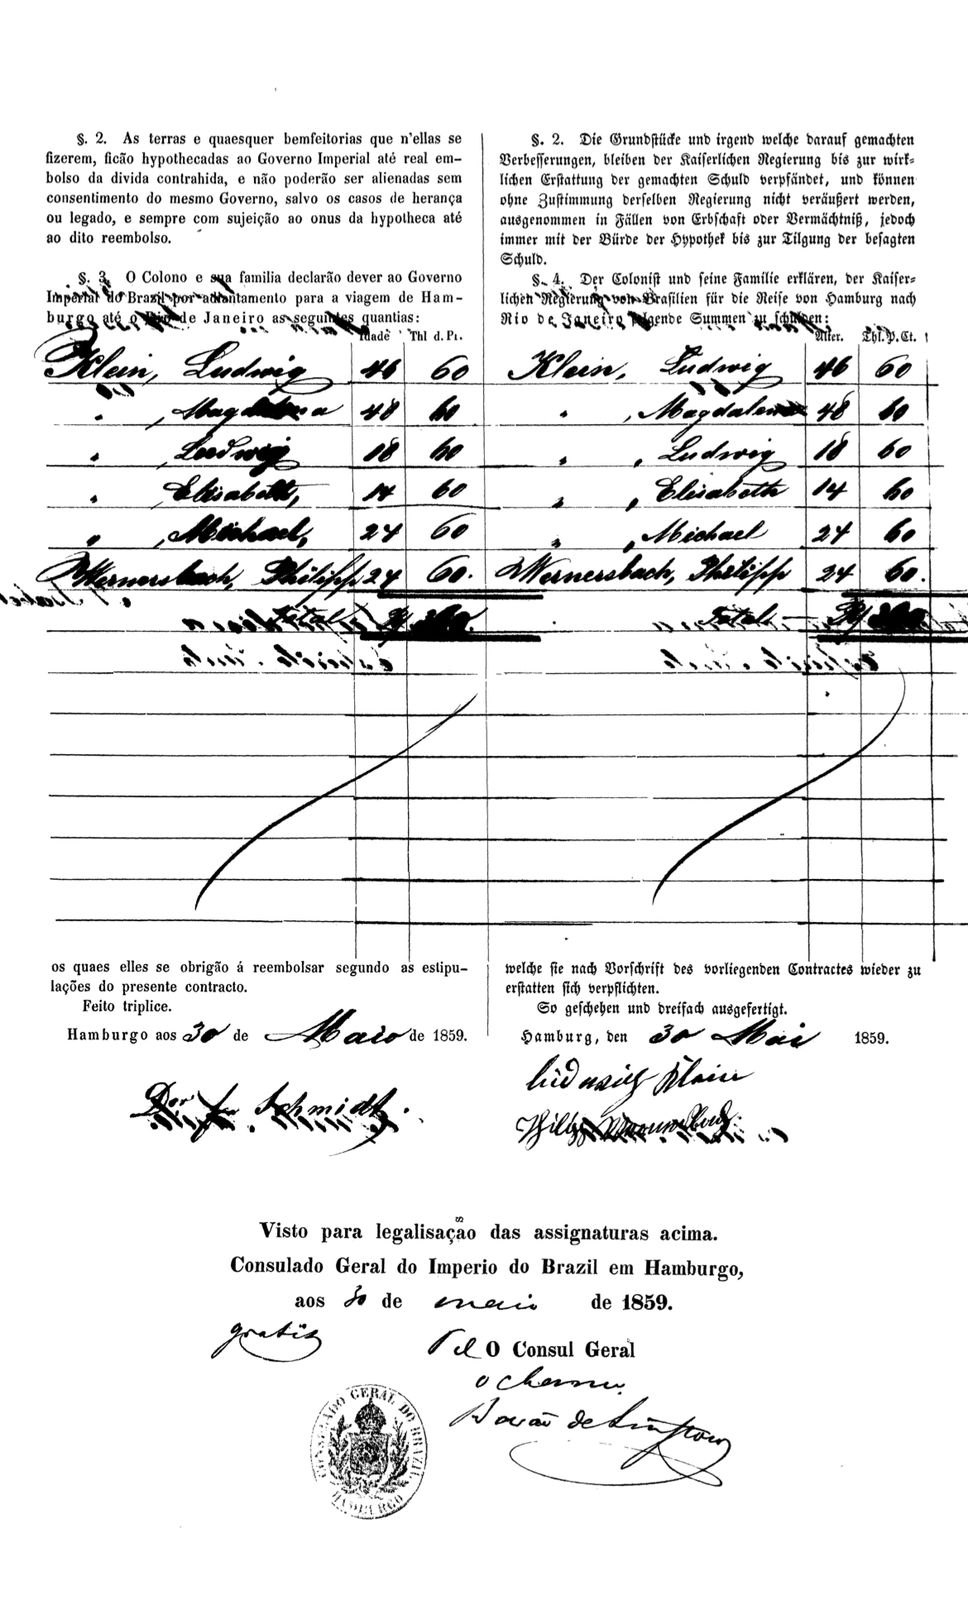 §. 2. As terras e quaesquer bemfeitorias que n'ellas se
fizerem, ficão hypothecadas ao Governo Imperial até real em-
bolso da divida contrahida, e não poderão ser alienadas sem
consentimento do mesmo Governo, salvo os casos de herança
ou legado, e sempre com sujeição ao onus da hypotheca até
ao dito reembolso.
§. 3. O Colono e sua familia declarão dever ao Governo
Imperial do Brazil por adiantamento para a viagem de Ham-
burgo até o Rio de Janeiro as seguintes quantias:
Idade Thl d. Pr.
Klein, Ludwig 46 60
" , Magdalena 48 60
" , Ludwig 18 60
" , Elisabeth, 14 60
" , Michael, 24 60
Wernersbach, Philipp 24 60.
Total
os quaes elles se obrigão á reembolsar segundo as estipu-
lações do presente contracto.
Feito triplice.
Hamburgo aos 30 de Maio de 1859.
Schmidt.
§. 2. Die Grundstücke und irgend welche darauf gemachten
Verbesserungen, bleiben der Kaiserlichen Regierung bis zur wirk-
lichen Erstattung der gemachten Schuld verpfändet, und können
ohne Zustimmung derselben Regierung nicht veräußert werden,
ausgenommen in Fällen von Erbschaft oder Vermächtniß, jedoch
immer mit der Bürde der Hypothek bis zur Tilgung der besagten
Schuld.
§. 4. Der Colonist und seine Familie erklären, der Kaiser-
lichen Regierung von Brasilien für die Reise von Hamburg nach
Rio de Janeiro folgende Summen zu schulden:
Alter. Thl. P. Ct.
Klein, Ludwig 46 60
" , Magdalena 48 60
" , Ludwig 18 60
" , Elisabeth 14 60
" , Michael 24 60
Wernersbach, Philipp 24 60.
Total
welche sie nach Vorschrift des vorliegenden Contractes wieder zu
erstatten sich verpflichten.
So geschehen und dreifach ausgefertigt.
Hamburg, den 30 Mai 1859.
Ludwig Klein
Visto para legalisação das assignaturas acima.
Consulado Geral do Imperio do Brazil em Hamburgo,
aos 30 de maio de 1859.
gratis
O Consul Geral
Barão de
CONSULADO GERAL DO BRAZIL
HAMBURGO